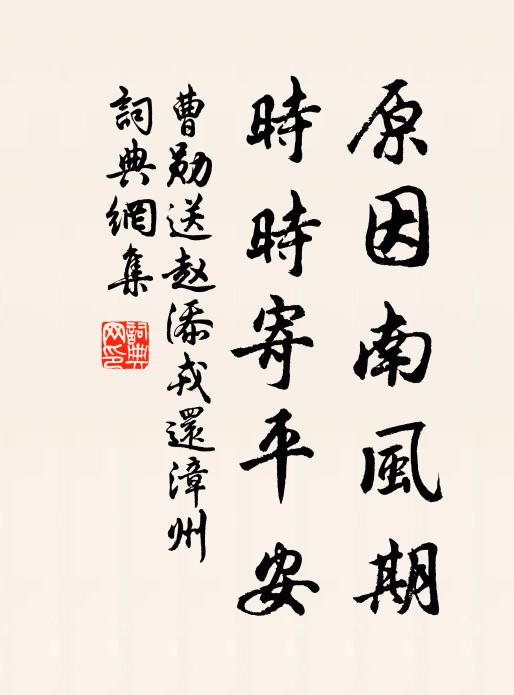 原因南風期
時時寄平安
曹勛送赵添戎還漳州
詞典網集
詞典網印